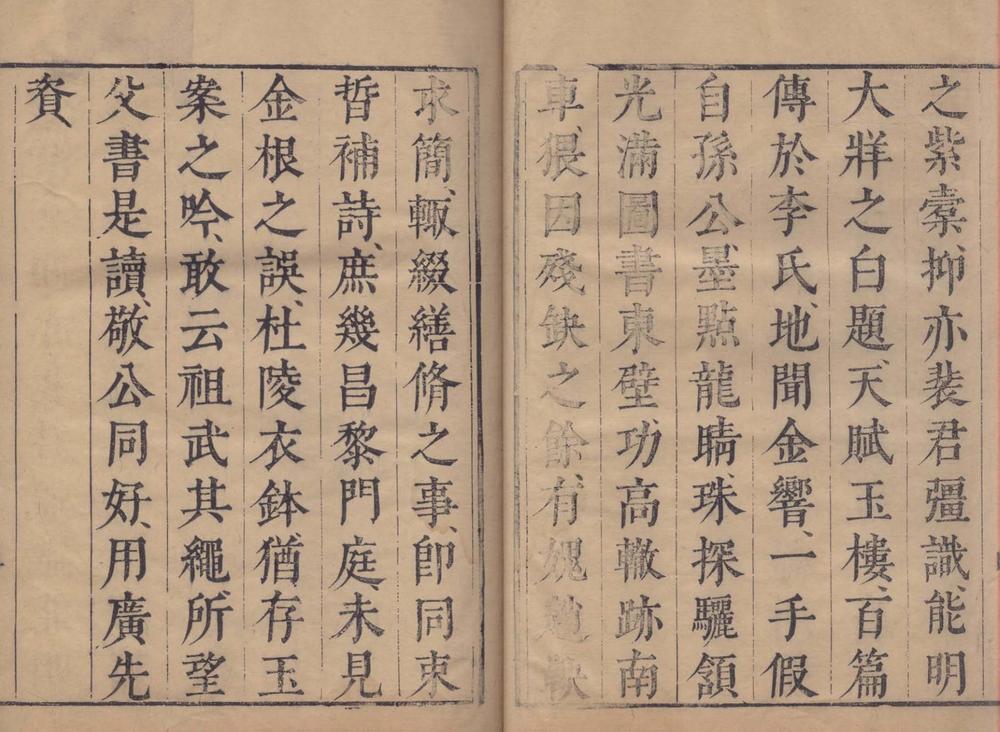 之紫橐、抑亦裴君彊識、能明
大牂之白題、天賦玉樓、百篇
傳於李氏、地聞金響、一手假
自孫公、墨點龍睛、珠探驪頷
光滿圖書東壁、功高轍跡南
車、猥因殘缺之餘、有媿
求簡、輙綴繕脩之事、卽同束
晢補詩、庶幾昌黎門庭、未見
金根之誤、杜陵衣鉢、猶存玉
案之吟、敢云祖武其繩、所望
父書是讀、敬公同好、用廣先
賚